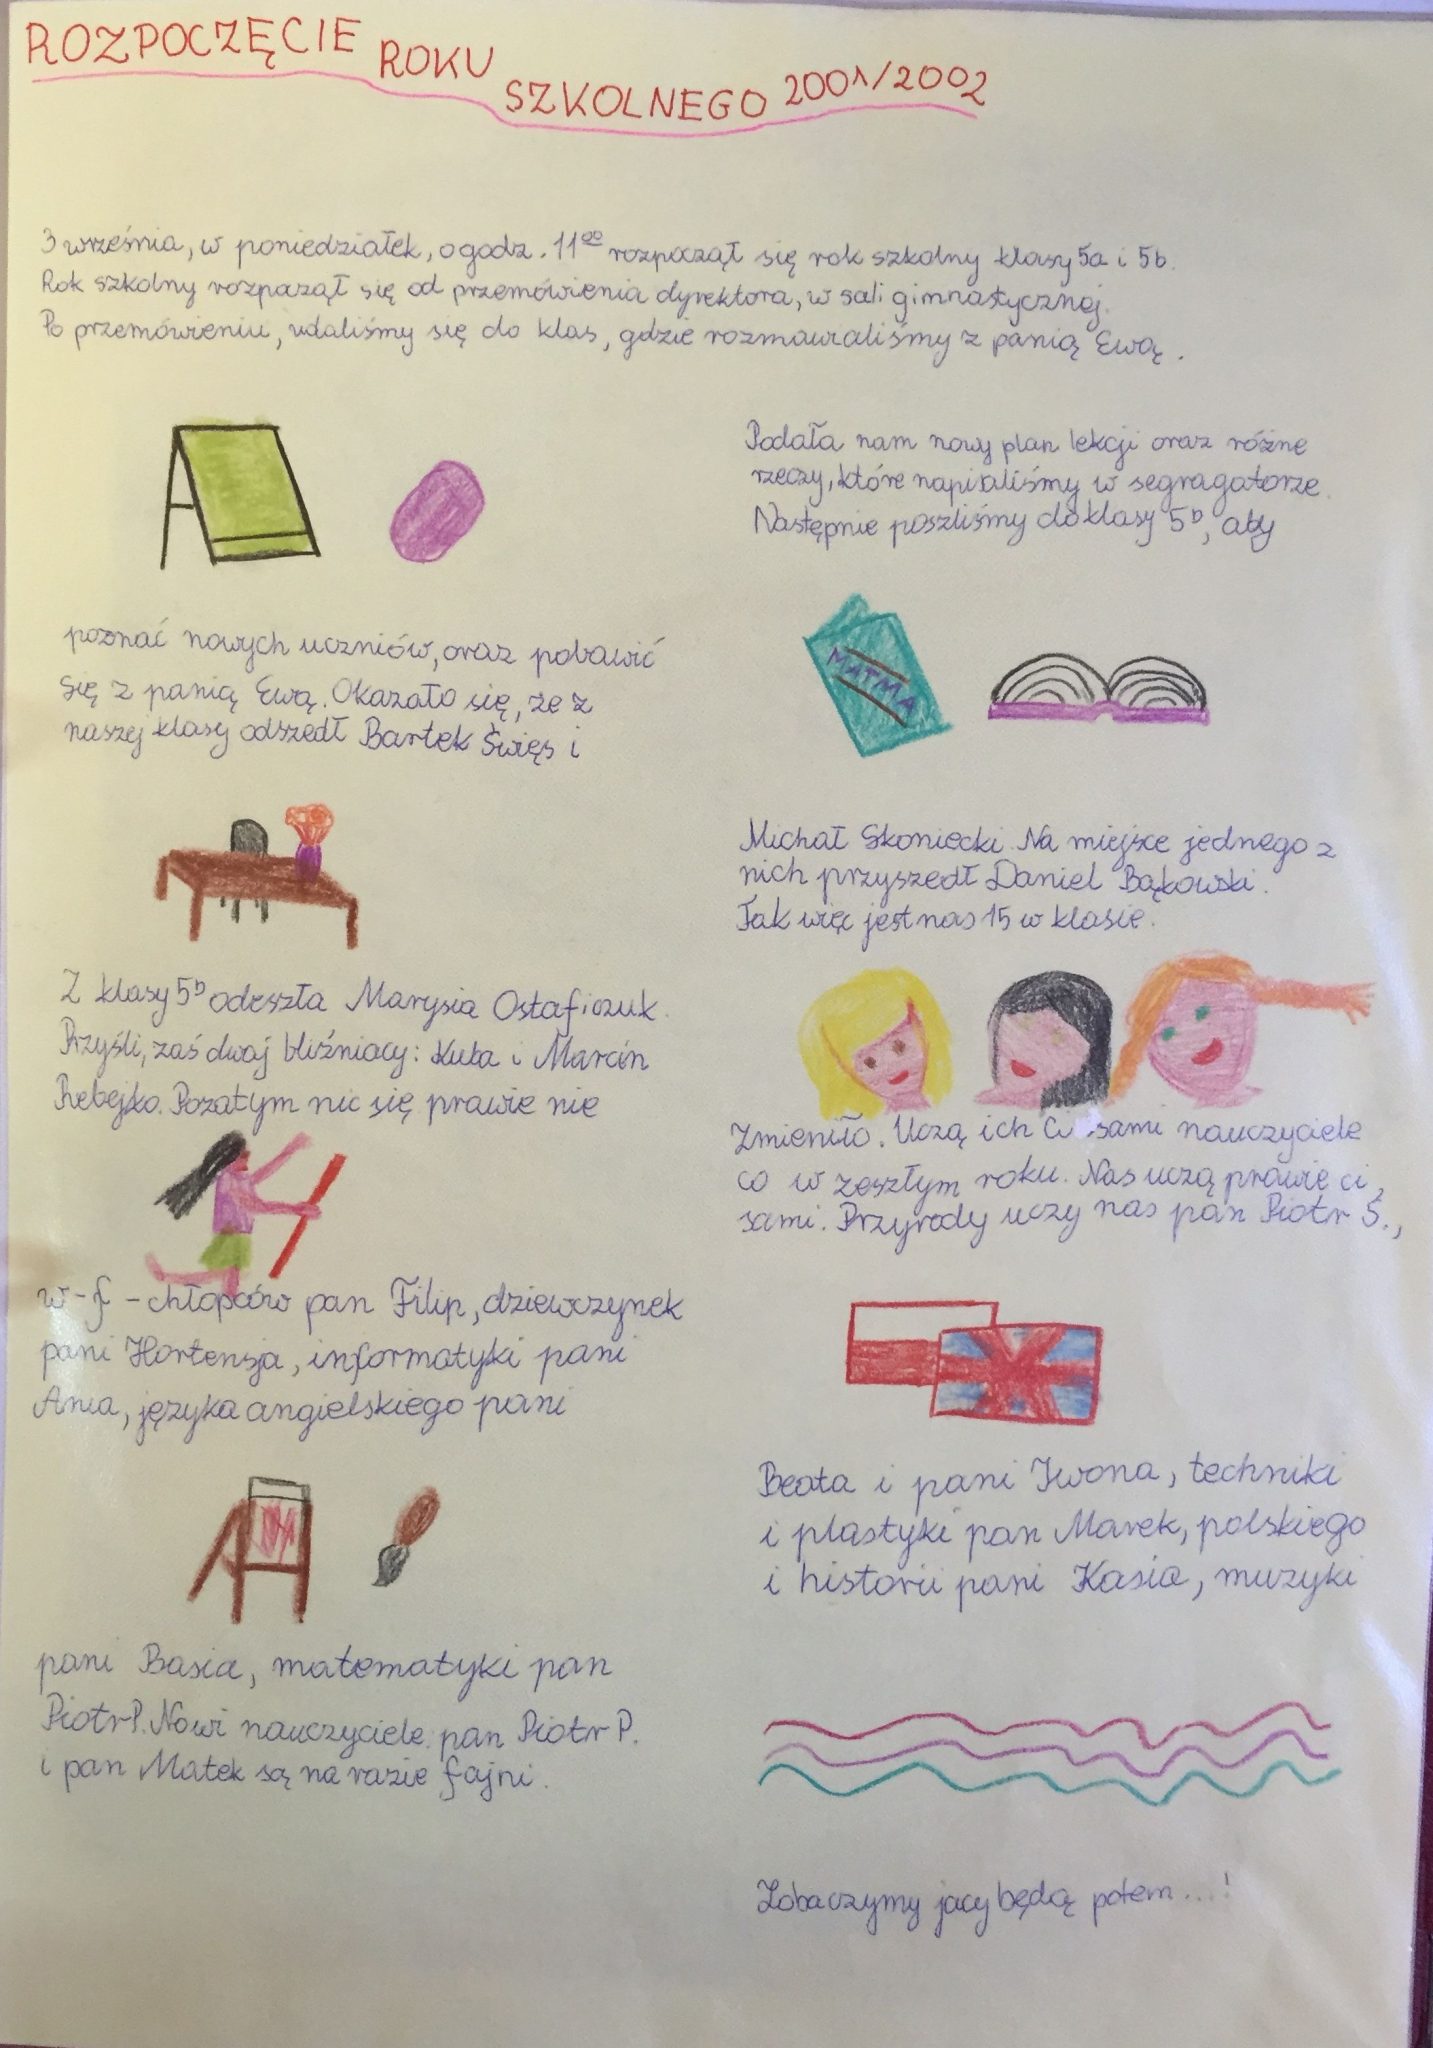 ROZPOCZĘCIE ROKU SZKOLNEGO 2001/2002
3 września, w poniedziałek, o godz. 11⁰⁰ rozpoczął się rok szkolny klasy 5a i 5b.
Rok szkolny rozpoczął się od przemówienia dyrektora, w sali gimnastycznej.
Po przemówieniu, udaliśmy się do klas, gdzie rozmawialiśmy z panią Ewą.
Podała nam nowy plan lekcji oraz różne
rzeczy, które napisaliśmy w segragatorze.
Następnie poszliśmy do klasy 5b, aby
MATMA
poznać nowych uczniów, oraz pobawić
się z panią Ewą. Okazało się, że z
naszej klasy odszedł Bartek Święs i
Michał Skoniecki. Na miejsce jednego z
nich przyszedł Daniel Bąkowski.
Tak więc jest nas 15 w klasie.
Z klasy 5b odeszła Marysia Ostaficzuk.
Przyśli, zaś dwaj bliźniacy: Kuba i Marcin
Rebejko. Pozatym nic się prawie nie
zmieniło. Uczą ich ci sami nauczyciele
co w zeszłym roku. Nas uczą prawie ci
sami. Przyrody uczy nas pan Piotr Ś.,
w-f - chłopców pan Filip, dziewczynek
pani Hortensja, informatyki pani
Ania, języka angielskiego pani
Beata i pani Iwona, techniki
i plastyki pan Marek, polskiego
i historii pani Kasia, muzyki
pani Basia, matematyki pan
Piotr P. Nowi nauczyciele: pan Piotr P.
i pan Matek są na razie fajni.
Zobaczymy jacy będą potem...!